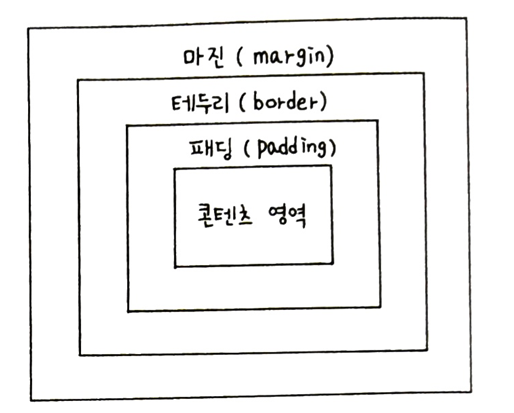 마진 ( margin)
테두리 ( border)
패딩 ( padding)
콘텐츠 영역